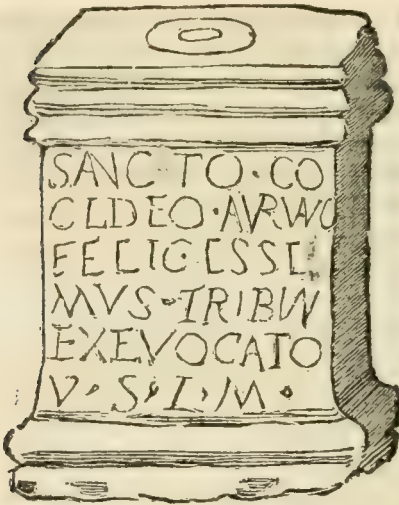 SANC TO·CO
CIDEO·AVRVNC
FELIC·ESSE
MVS·TRIBVN
EXEVOCATO
V·S·L·M·